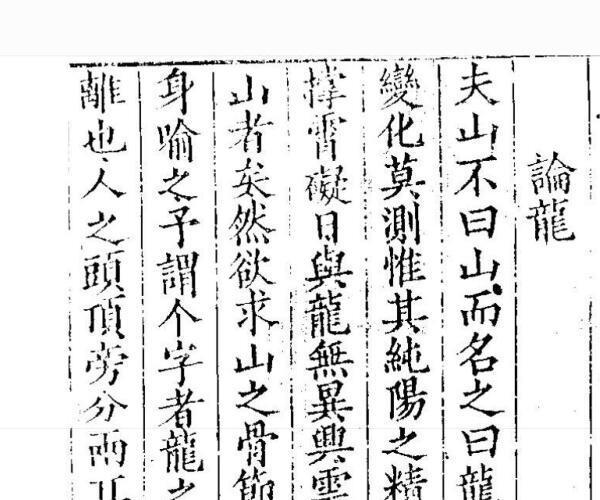 論龍
夫山不曰山而名之曰龍
變化莫測惟其純陽之精
撑霄礙日與龍無異興雲
山者矣然欲求山之骨節
身喻之予謂个字者龍之
離也人之頭頂旁分兩耳